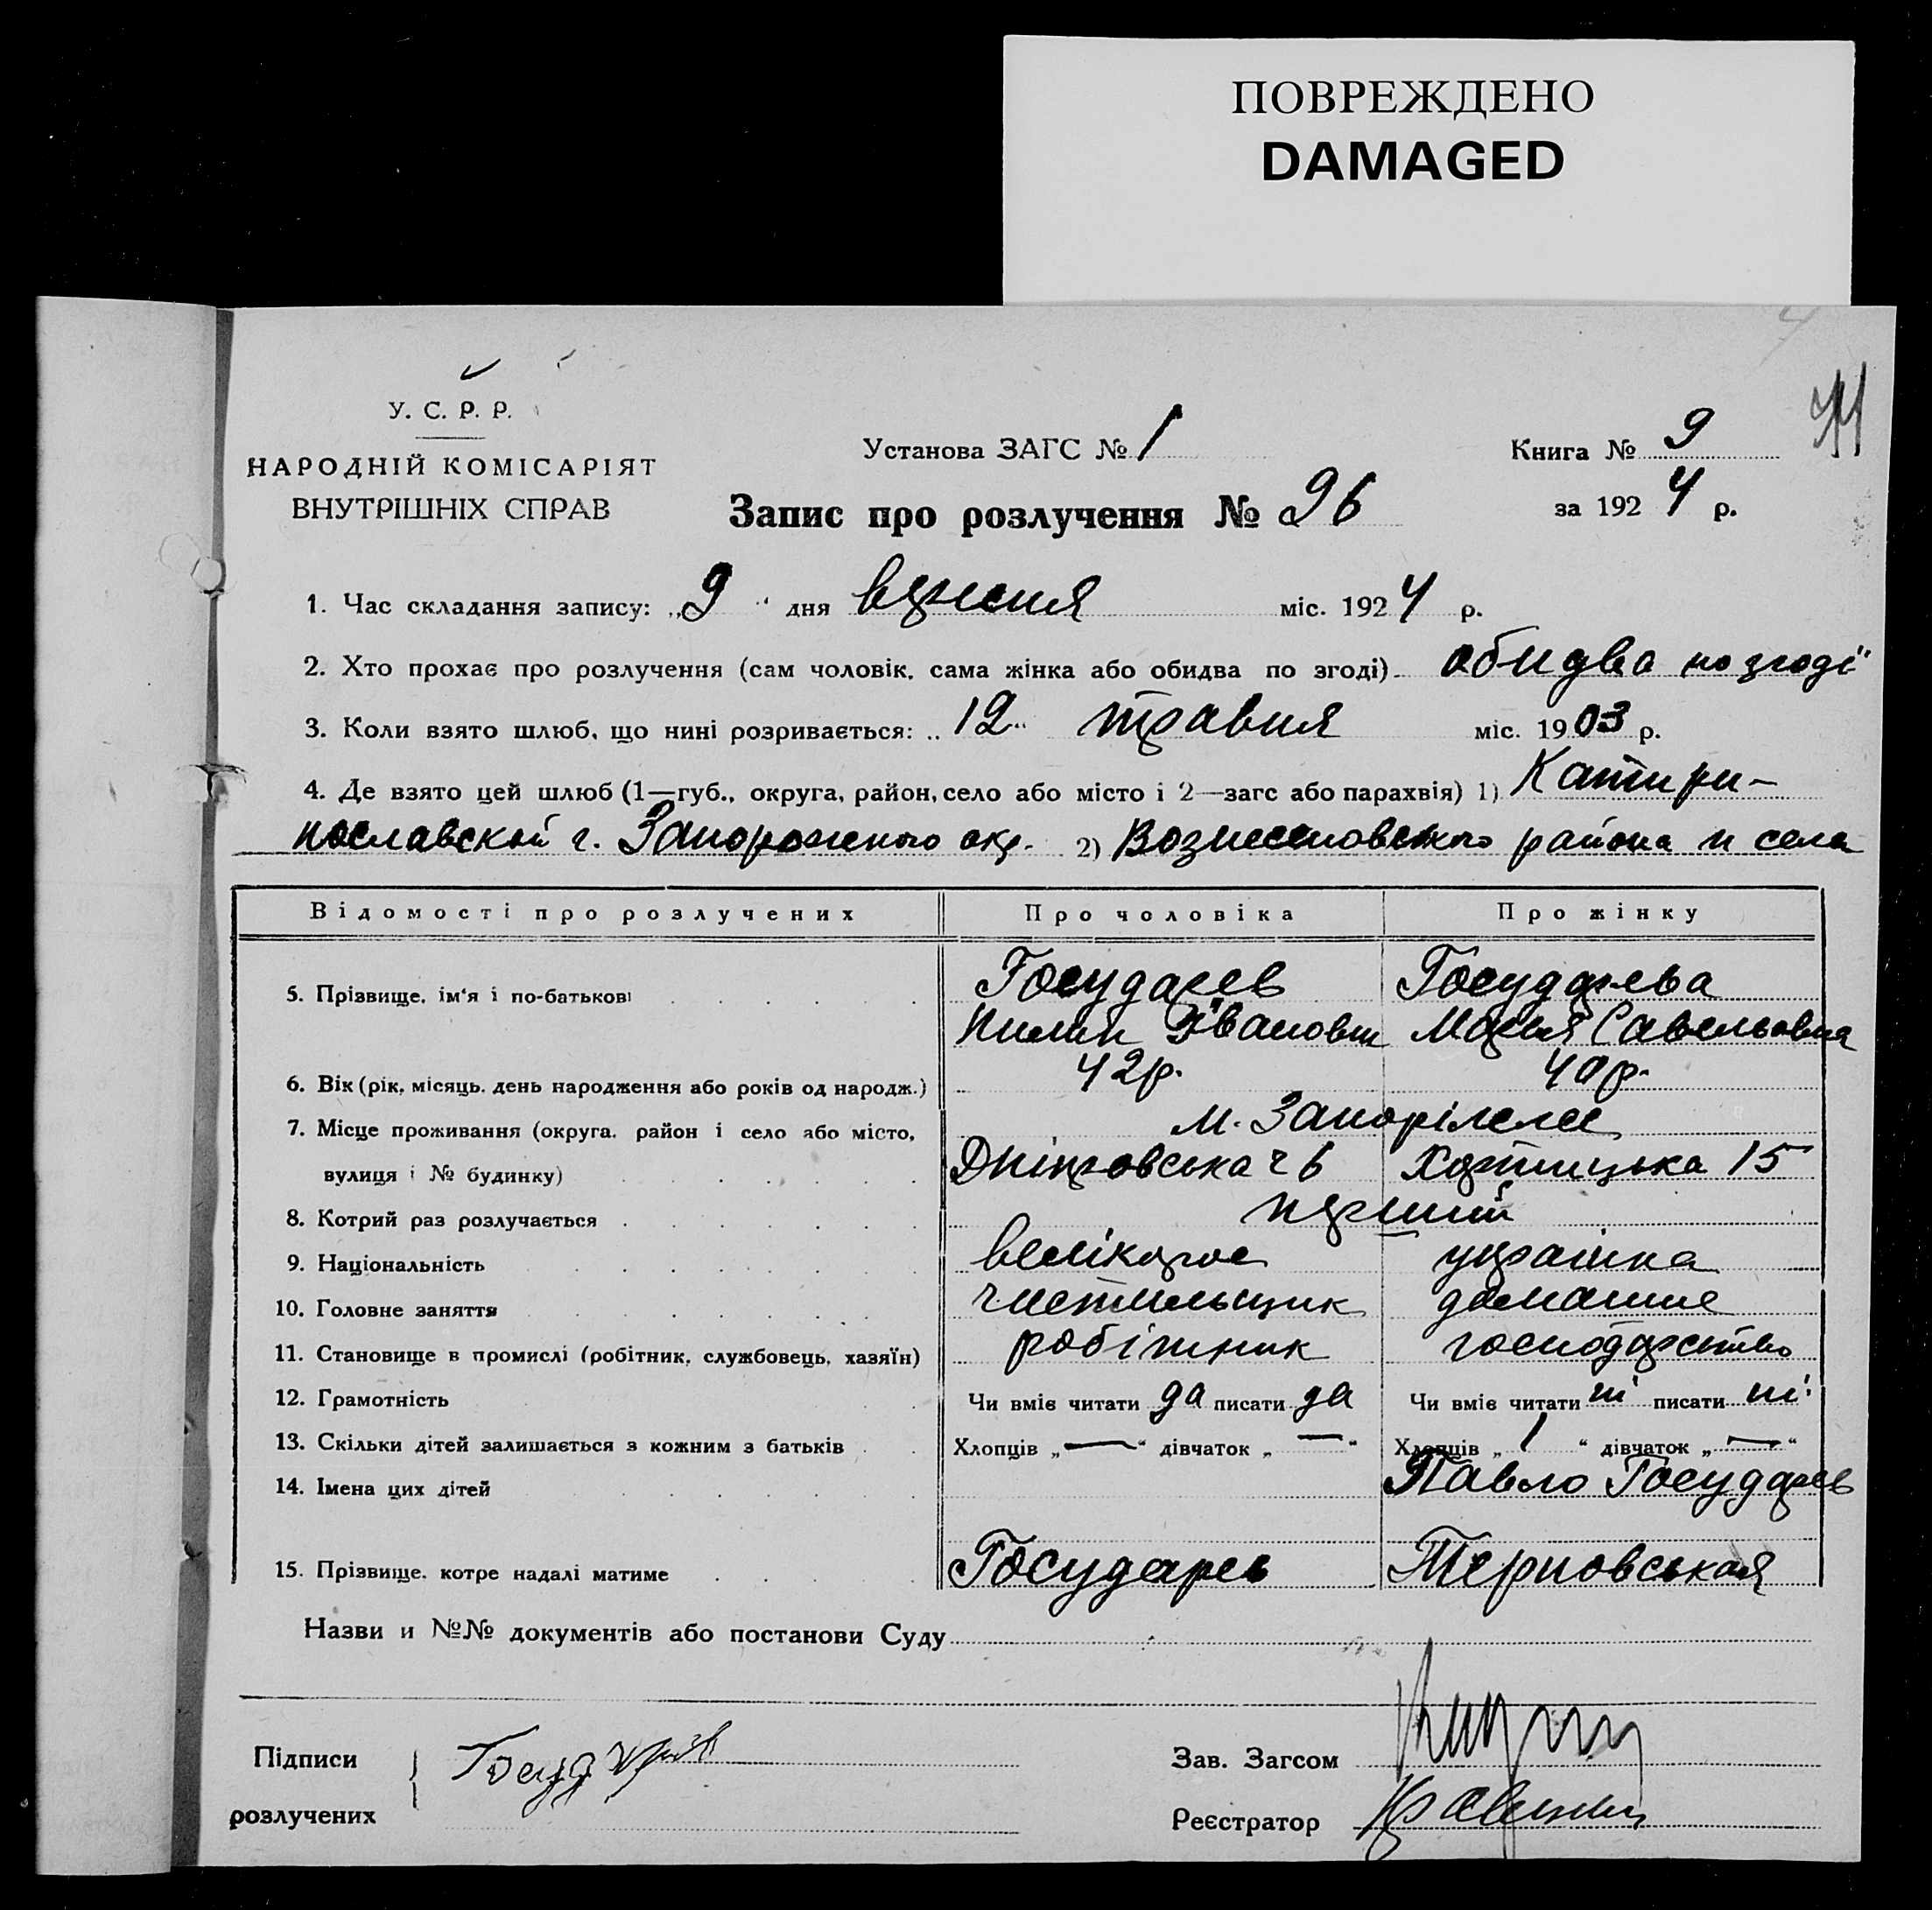 ПОВРЕЖДЕНО
DAMAGED
У. С. Р. Р.
НАРОДНІЙ КОМІСАРІЯТ
ВНУТРІШНІХ СПРАВ
Установа ЗАГС № 1
Книга № 9
за 1924 р.
Запис про розлучення № 96
1. Час складання запису: „9" дня вересня міс. 1924 р.
2. Хто прохає про розлучення (сам чоловік, сама жінка або обидва по згоді) обидва по згоді
3. Коли взято шлюб, що нині розривається: „12" травня міс. 1903 р.
4. Де взято цей шлюб (1—губ., округа, район, село або місто і 2—загс або парахвія) 1) Катири-
нославской г. Запорожского окр. 2) Вознесеновського района и села
Відомості про розлучених Про чоловіка Про жінку
5. Прізвище, ім'я і по-батькові Государев Государева
Пилип Іванович Марія Савельовна
6. Вік (рік, місяць, день народження або років од народж.) 42 р. 40 р.
7. Місце проживання (округа, район і село або місто, м. Запоріжжє
вулиця і № будинку) Дніпровська 26 Хортицька 15
8. Котрий раз розлучається перший
9. Національність велікорос українка
10. Головне заняття чистильщик домашнє
11. Становище в промислі (робітник, службовець, хазяїн) робітник господарство
12. Грамотність Чи вміє читати да писати да Чи вміє читати ні писати ні
13. Скільки дітей залишається з кожним з батьків Хлопців „—" дівчаток „—" Хлопців „1" дівчаток „—"
14. Імена цих дітей Павло Государев
15. Прізвище, котре надалі матиме Государев Терновськая
Назви и №№ документів або постанови Суду
Підписи
розлучених
Зав. Загсом
Реєстратор